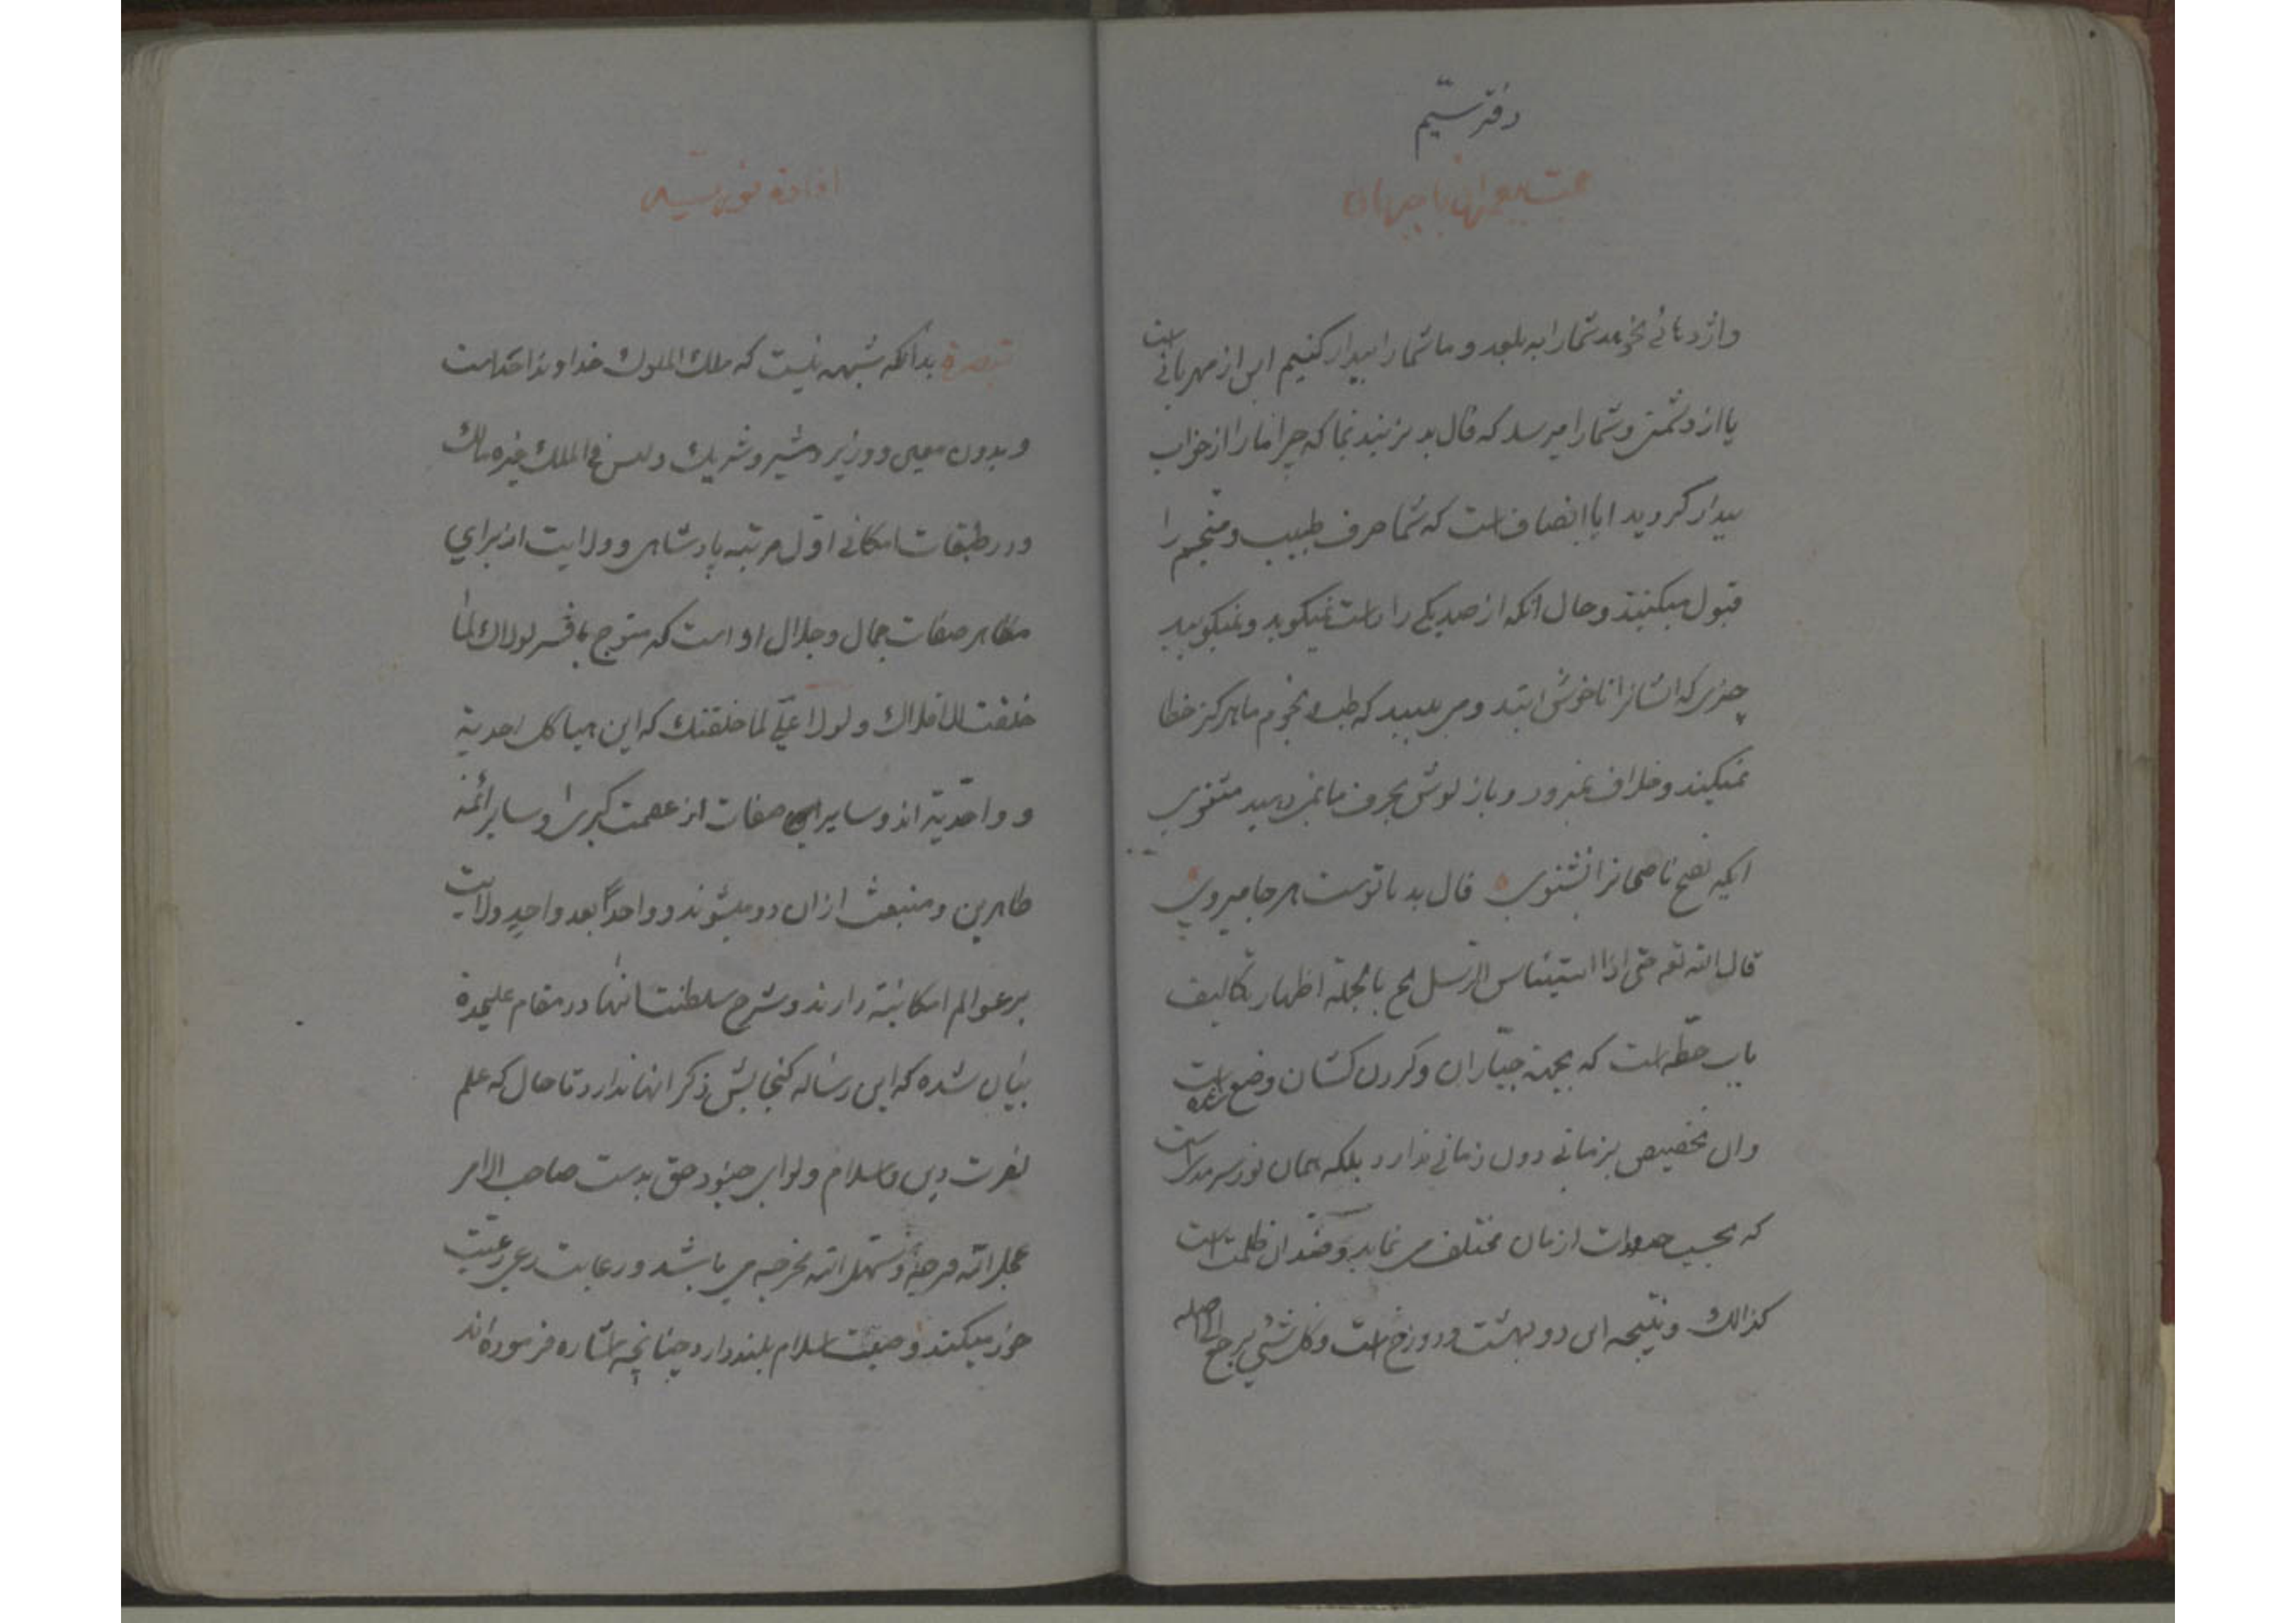 دفتر سیّم
واژدهائی بخواهد شما را به بلعد و ما شما را بیدار کنیم این از مهربانی است
یا از دشمنی و شما را میرسد که فال بد بزنید بما که چرا ما را از خواب
بیدار کردید ایا انصاف است که شما حرف طبیب و منجّم را
قبول میکنید و حال آنکه از صد یکی را راست نمیگوید و نمیگویید
چیزی که انسانرا ناخوش ابتد و می بینید که طب و نجوم ما هرگز خطا
نمیکند و خلاف نمیرود و باز گوش بحرف ما نمی دهید مثنوی
ایکه نصح ناصحانرا نشنوی فال بد با توست هر جا میروی
قال الله تعه حتی اذا استیئاس الرّسل الخ بالجمله اظهار تکالیف
باب حطّه است که بجهة جبّاران و گردن کشان وضع شده است
وان تخصیص بزمانی دون زمانی ندارد بلکه همان نور سرمد است
که بحسب حدودات ازمان مختلف می نماید و ضد ان ظلمت است
کذالك و نتیجه این دو بهشت و دوزخ است و کل شئی یرجع الی اصله
تبصرة بدانکه شبهه نیست که ملك الملوك خداوند احد است
و بدون معین و وزیر و مشیر و شریك و لیس فی الملك غیره مالك
و در طبقات امکانی اوّل مرتبه پادشاهی و ولایت از برای
مظاهر صفات جمال و جلال او است که متوج بافسر لولاك لما
خلقت الافلاك و لولا علیّ لما خلقتك که این هیاکل احدیة
و واحدیّة اند و سایر صفات از عصمت کبری و سایر ائمّه
طاهرین و منبعث از ان دو میشوند و واحداً بعد واحدٍ ولایت
بر عوالم امکانیّه دارند و شرح سلطنت انها در مقام علیحده
بیان شده که این رساله گنجایش ذکر انها ندارد تا حال که علم
نصرت دین و اسلام و لوای جنود حق بدست صاحب الامر
عجل الله فرجه و سهّل الله مخرجه می باشد و رعایت رعیّت
خود میکند و صیت اسلام بلند دارد چنانچه اشاره فرموده اند